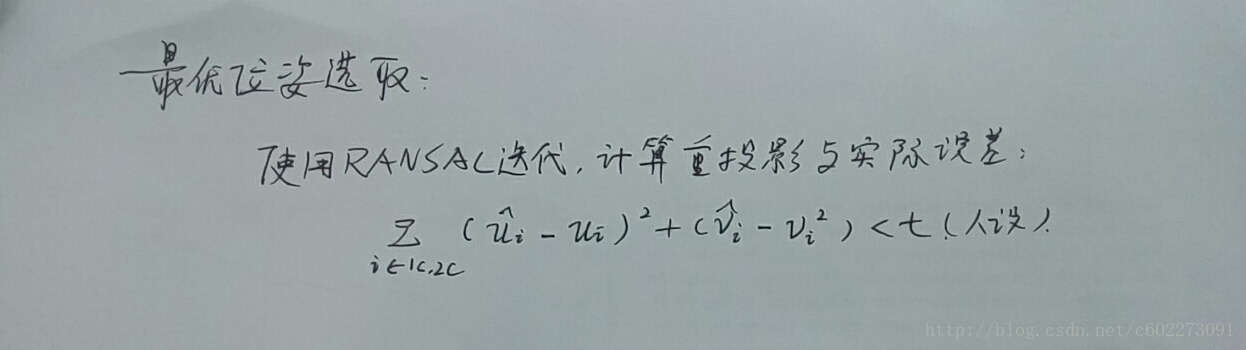 最优位姿选取:
使用RANSAC迭代,计算重投影与实际误差:
∑ (û_i - u_i)² + (v̂_i - v_i²) < t (人设)
i∈1C,2C
http://blog.csdn.net/c602273091